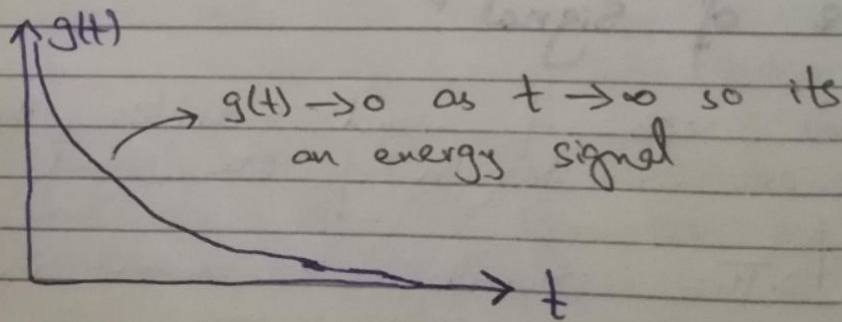 g(t)
g(t) → 0 as t → ∞ so its
an energy signal
t